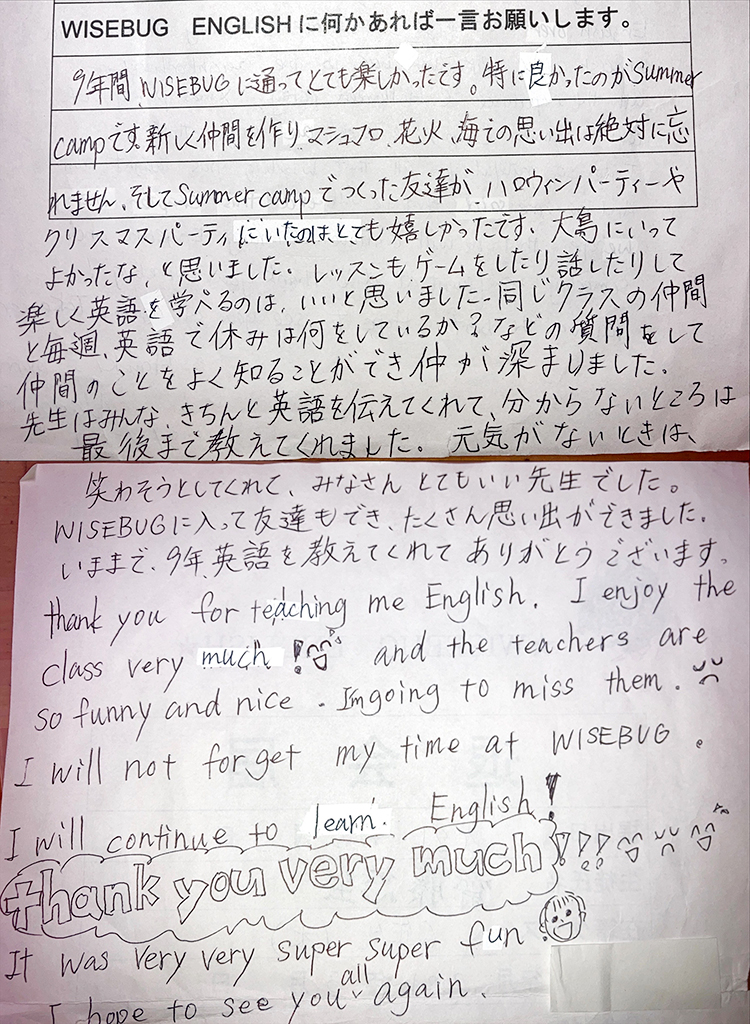 WISEBUG ENGLISHに何かあれば一言お願いします。
9年間、WISEBUGに通ってとても楽しかったです。特に良かったのがSummer
campです。新しく仲間を作り、マシュマロ、花火、海での思い出は絶対に忘
れません。そしてSummer campでつくった友達が ハロウィンパーティーや
クリスマスパーティにいたのはとても嬉しかったです。大島にいって
よかったな、と思いました。レッスンも、ゲームをしたり話したりして
楽しく英語を学べるのは、いいと思いました。同じクラスの仲間
と毎週、英語で休みは何をしているか？などの質問をして
仲間のことをよく知ることができ仲が深まりました。
先生はみんな、きちんと英語を伝えてくれて、分からないところは
最後まで教えてくれました。元気がないときは、
笑わそうとしてくれて、みなさんとてもいい先生でした。
WISEBUGに入って友達もでき、たくさん思い出ができました。
いままで、9年、英語を教えてくれてありがとうございます。
thank you for teaching me English. I enjoy the
class very much! and the teachers are
so funny and nice. I'm going to miss them.
I will not forget my time at WISEBUG.
I will continue to learn. English!
thank you very much!!!!
It was very very super super fun
I hope to see you all again.